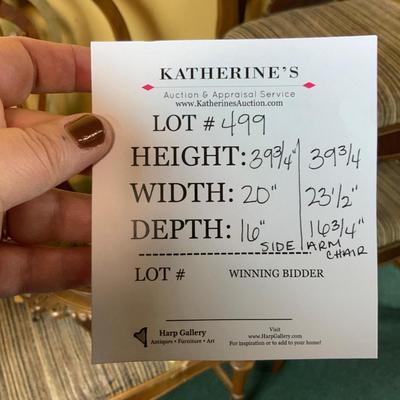 KATHERINE'S
Auction & Appraisal Service
www.KatherinesAuction.com
LOT # 499
HEIGHT: 39 3/4" 39 3/4
WIDTH: 20" 23 1/2"
DEPTH: 16" 16 3/4"
SIDE ARM CHAIR
LOT # WINNING BIDDER
Harp Gallery
Antiques • Furniture • Art
Visit
www.HarpGallery.com
For inspiration or to add to your home!